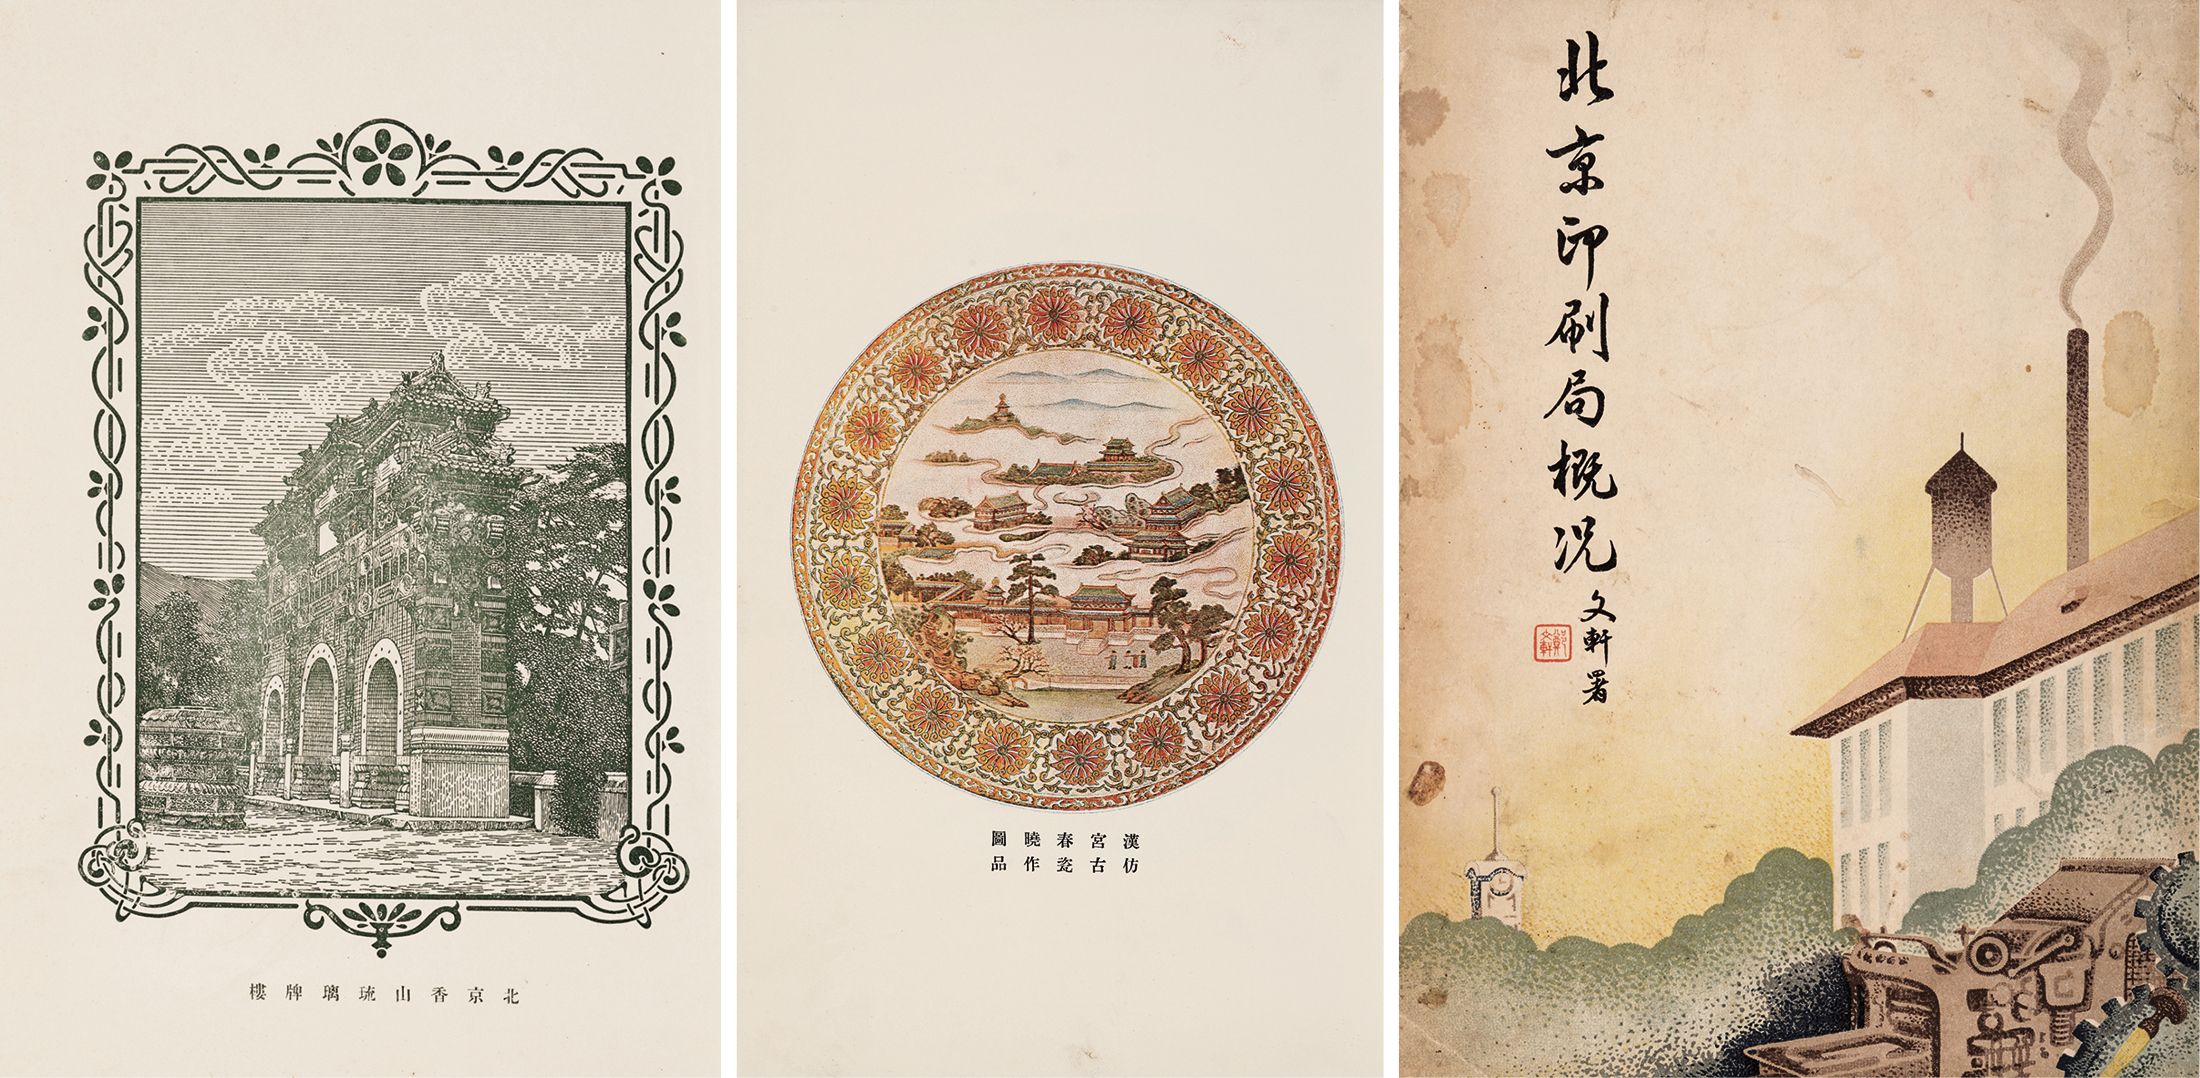 北京香山琉璃牌樓
漢宮春曉圖
仿古瓷作品
北京印刷局概况
文軒署
鄭文軒